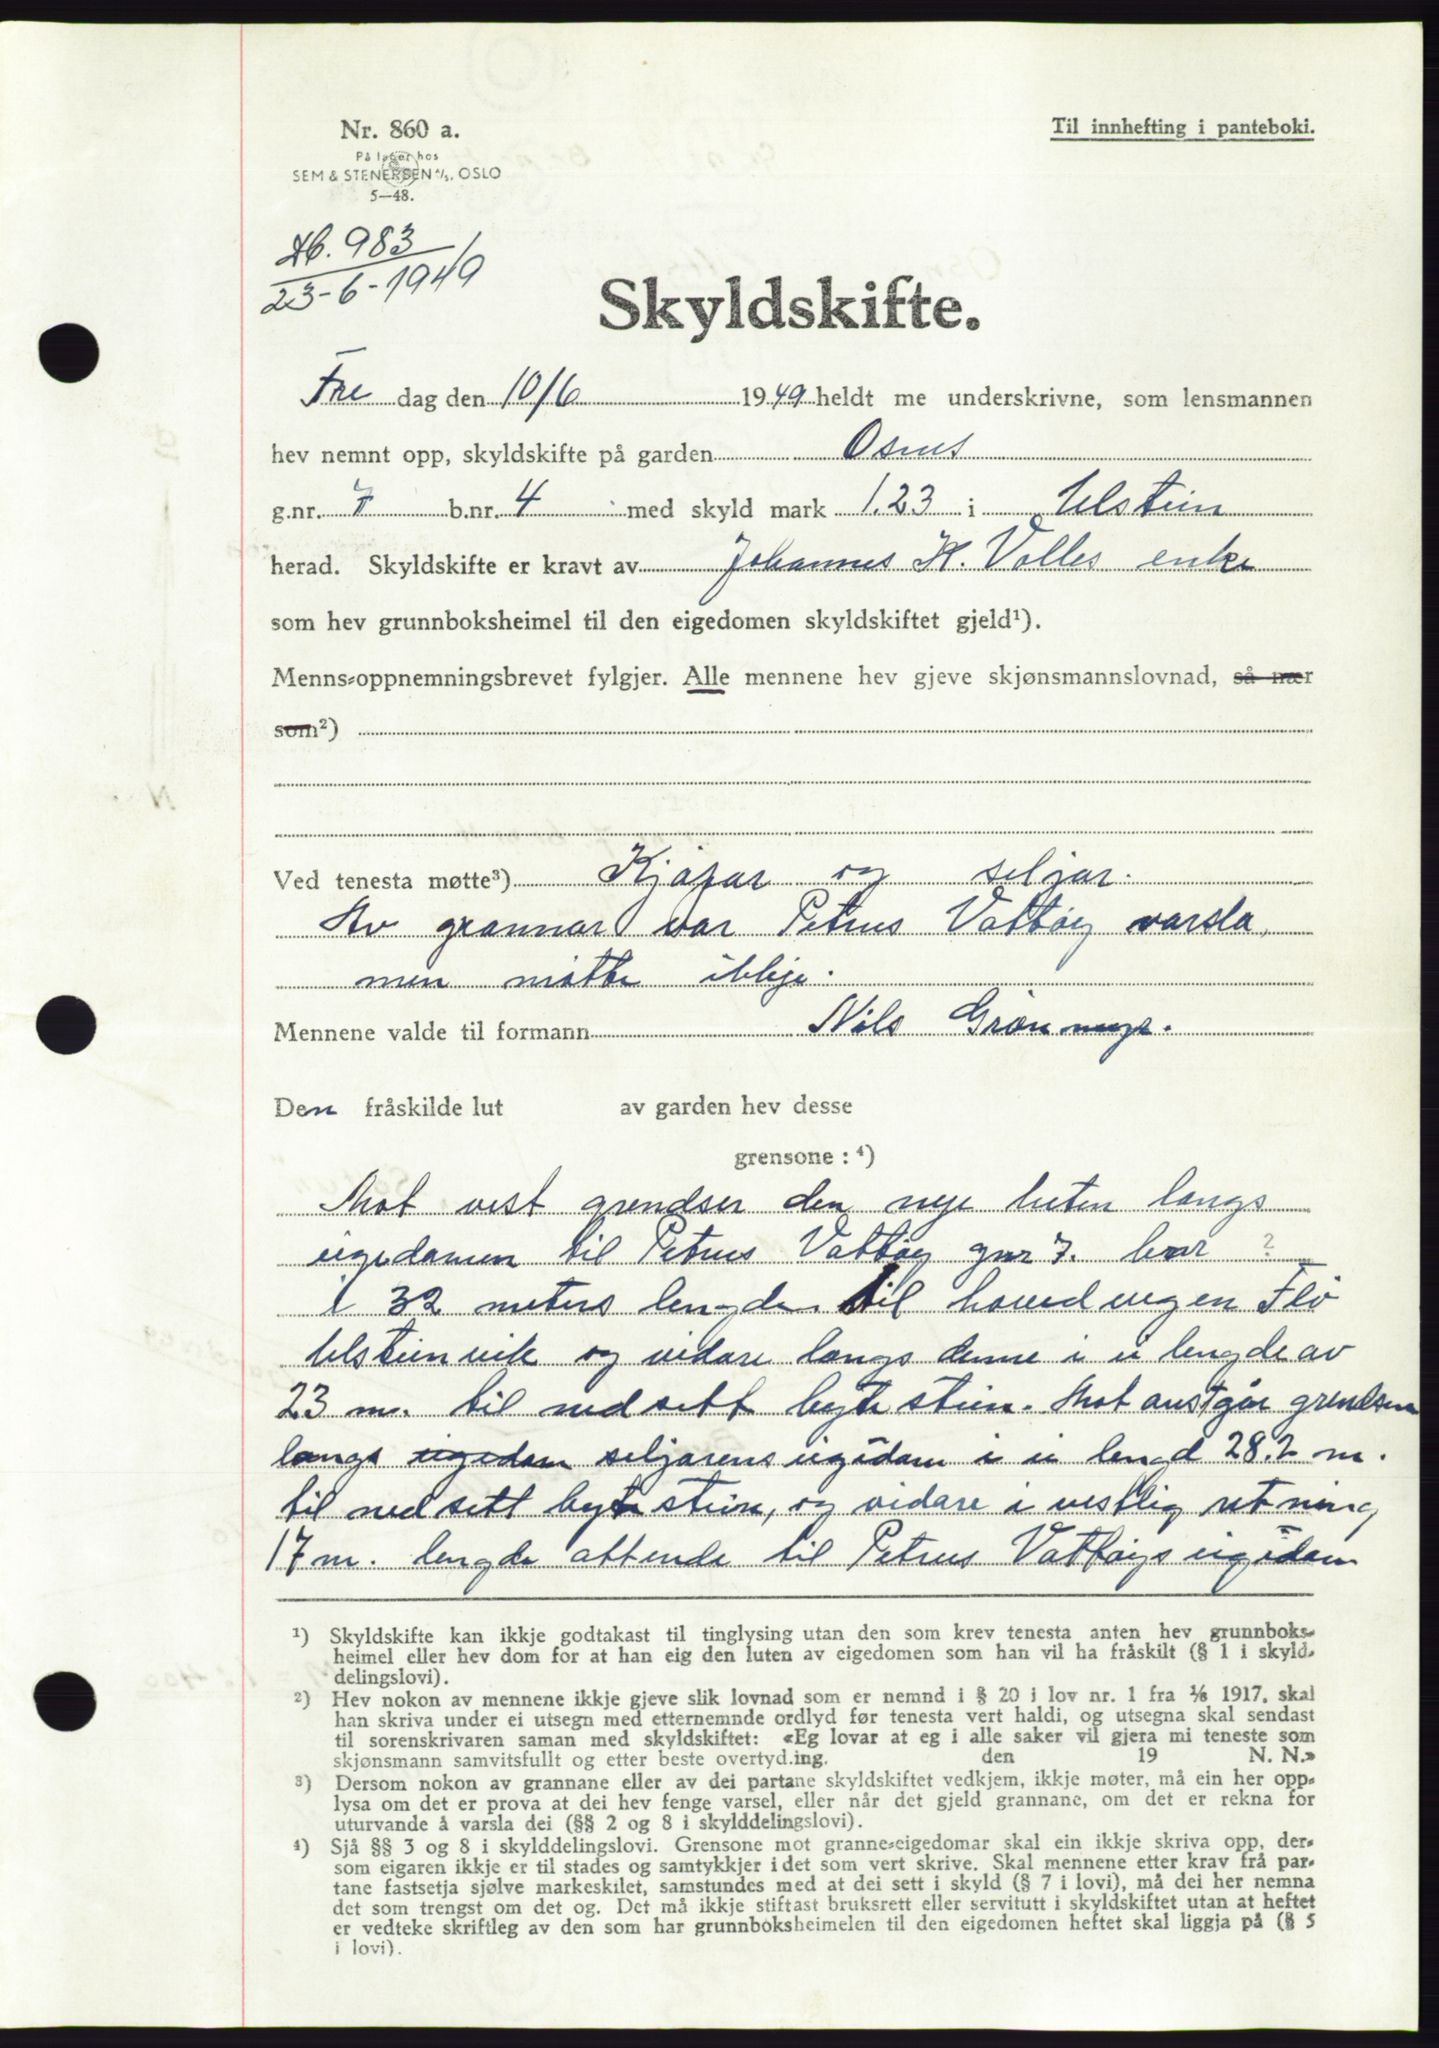 Nr. 860 a.
På lager hos
SEM & STENERSEN A/S, OSLO
5—48.
Til innhefting i panteboki.
Db. 983
23-6-1949
Skyldskifte.
Fre dag den 10/6 1949 heldt me underskrivne, som lensmannen
hev nemnt opp, skyldskifte på garden Osnes
g.nr. 7 b.nr. 4 med skyld mark 1.23 i Ulstein
herad. Skyldskifte er kravt av Johannes K. Volles enke
som hev grunnboksheimel til den eigedomen skyldskiftet gjeld¹).
Menns-oppnemningsbrevet fylgjer. Alle mennene hev gjeve skjønsmannslovnad, så nær
som²)
Ved tenesta møtte³) Kjøpar og seljar.
Av grannar var Petrus Vattøy varsla,
men møtte ikkje.
Mennene valde til formann Nils Grønnings.
Den fråskilde lut av garden hev desse
grensone : ⁴)
Mot vest grendser den nye luten langs
eigedomen til Petrus Vattøy gnr 7. bnr ?
i 32 meters lengde til hovedvegen Flø
Ulsteinvik og vidare langs denne i ei lengde av
23 m. til nedsett bytestein. Mot aust går grendsen
langs eigedom seljarens eigedom i ei lengd 28.2 m.
til nedsett bytestein, og vidare i vestlig retning
17 m. lengde attende til Petrus Vattøys eigedom
¹) Skyldskifte kan ikkje godtakast til tinglysing utan den som krev tenesta anten hev grunnboks-
heimel eller hev dom for at han eig den luten av eigedomen som han vil ha fråskilt (§ 1 i skyld-
delingslovi).
²) Hev nokon av mennene ikkje gjeve slik lovnad som er nemnd i § 20 i lov nr. 1 fra 1/6 1917, skal
han skriva under ei utsegn med etternemnde ordlyd før tenesta vert haldi, og utsegna skal sendast
til sorenskrivaren saman med skyldskiftet: «Eg lovar at eg i alle saker vil gjera mi teneste som
skjønsmann samvitsfullt og etter beste overtyd.ing. den 19 N. N.»
³) Dersom nokon av grannane eller av dei partane skyldskiftet vedkjem, ikkje møter, må ein her opp-
lysa om det er prova at dei hev fenge varsel, eller når det gjeld grannane, om det er rekna for
uturvande å varsla dei (§§ 2 og 8 i skylddelingslovi).
⁴) Sjå §§ 3 og 8 i skylddelingslovi. Grensone mot granne-eigedomar skal ein ikkje skriva opp, der-
som eigaren ikkje er til stades og samtykkjer i det som vert skrive. Skal mennene etter krav frå par-
tane fastsetja sjølve markeskilet, samstundes med at dei sett i skyld (§ 7 i lovi), må dei her nemna
det som trengst om det og. Det må ikkje stiftast bruksrett eller servitutt i skyldskiftet utan at heftet
er vedteke skriftleg av den som har grunnboksheimelen til den eigedomen heftet skal liggja på (§ 5
i lovi).